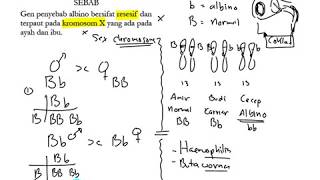 SEBAB
Gen penyebab albino bersifat resesif dan
terpaut pada kromosom X yang ada pada
ayah dan ibu.
x
x
Sex chromosome?
♂ ♀
Bb x BB
①
B b
B BB Bb
Bb x Bb
♂ ♀
B b
B BB Bb
b = albino
B = Normal
13 13 13
Amir Budi Cecep
Normal Karier Albino
BB Bb bb
- Haemophilia
- Buta warna